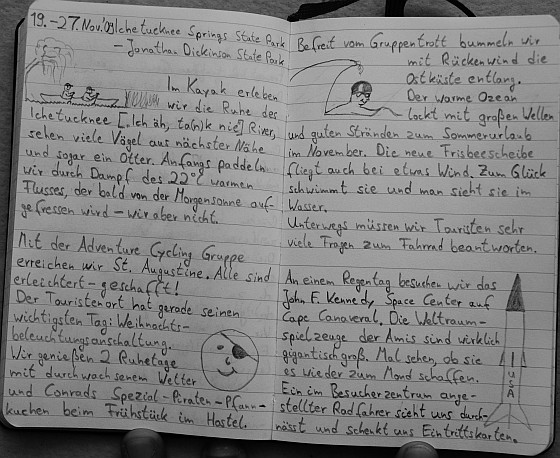 19.-27. Nov.'09 Ichetucknee Springs State Park
- Jonathan Dickinson State Park
Im Kayak erleben
wir die Ruhe des
Ichetucknee [„Ich äh, ta(n)k nie] River,
sehen viele Vögel aus nächster Nähe
und sogar ein Otter. Anfangs paddeln
wir durch Dampf des 22°C warmen
Flusses, der bald von der Morgensonne auf-
gefressen wird - wir aber nicht.
Mit der Adventure Cycling Gruppe
erreichen wir St. Augustine. Alle sind
erleichtert - geschafft!
Der Touristenort hat gerade seinen
wichtigsten Tag: Weihnachts-
beleuchtungsanschaltung.
Wir genießen 2 Ruhetage
mit durchwachsenem Wetter
und Conrads Spezial-Piraten-Pfann-
kuchen beim Frühstück im Hostel.
Befreit vom Gruppentrott bummeln wir
mit Rückenwind die
Ostküste entlang.
Der warme Ozean
lockt mit großen Wellen
und guten Stränden zum Sommerurlaub
im November. Die neue Frisbeescheibe
fliegt auch bei etwas Wind. Zum Glück
schwimmt sie und man sieht sie im
Wasser.
Unterwegs müssen wir Touristen sehr
viele Fragen zum Fahrrad beantworten.
An einem Regentag besuchen wir das
John F. Kennedy Space Center auf
Cape Canaveral. Die Weltraum-
spielzeuge der Amis sind wirklich
gigantisch groß. Mal sehen, ob sie
es wieder zum Mond schaffen.
Ein im Besucherzentrum ange-
stellter Radfahrer sieht uns durch-
nässt und schenkt uns Eintrittskarten.
USA